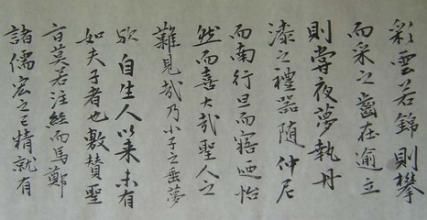 彩雲若錦則攀
而采之齒在逾立
則嘗夜夢執丹
漆之禮器隨仲尼
而南行旦而寤迺怡
然而喜大哉聖人之
難見哉乃小子之垂夢
歟自生人以來未有
如夫子者也敷贊聖
旨莫若注經而馬鄭
諸儒宏之已精就有